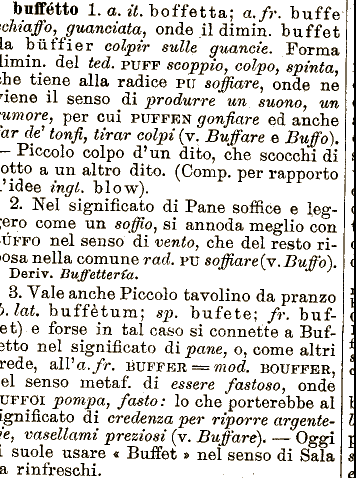 buffétto 1. a. it. boffetta; a. fr. buffe
schiaffo, guanciata, onde il dimin. buffet
da büffier colpir sulle guancie. Forma
dimin. del ted. PUFF scoppio, colpo, spinta,
che tiene alla radice PU soffiare, onde ne
viene il senso di produrre un suono, un
rumore, per cui PUFFEN gonfiare ed anche
far de' tonfi, tirar colpi (v. Buffare e Buffo).
— Piccolo colpo d'un dito, che scocchi di
sotto a un altro dito. (Comp. per rapporto
all'idee ingl. blow).
2. Nel significato di Pane soffice e leg-
gero come un soffio, si annoda meglio con
BÚFFO nel senso di vento, che del resto ri-
posa nella comune rad. PU soffiare (v. Buffo).
Deriv. Buffettería.
3. Vale anche Piccolo tavolino da pranzo
b. lat. buffètum; sp. bufete; fr. buf-
fet) e forse in tal caso si connette a Buf-
fetto nel significato di pane, o, come altri
crede, all'a. fr. BUFFER = mod. BOUFFER,
nel senso metaf. di essere fastoso, onde
BUFFOI pompa, fasto: lo che porterebbe al
significato di credenza per riporre argente-
rie, vasellami preziosi (v. Buffare). — Oggi
si suole usare « Buffet » nel senso di Sala
da rinfreschi.